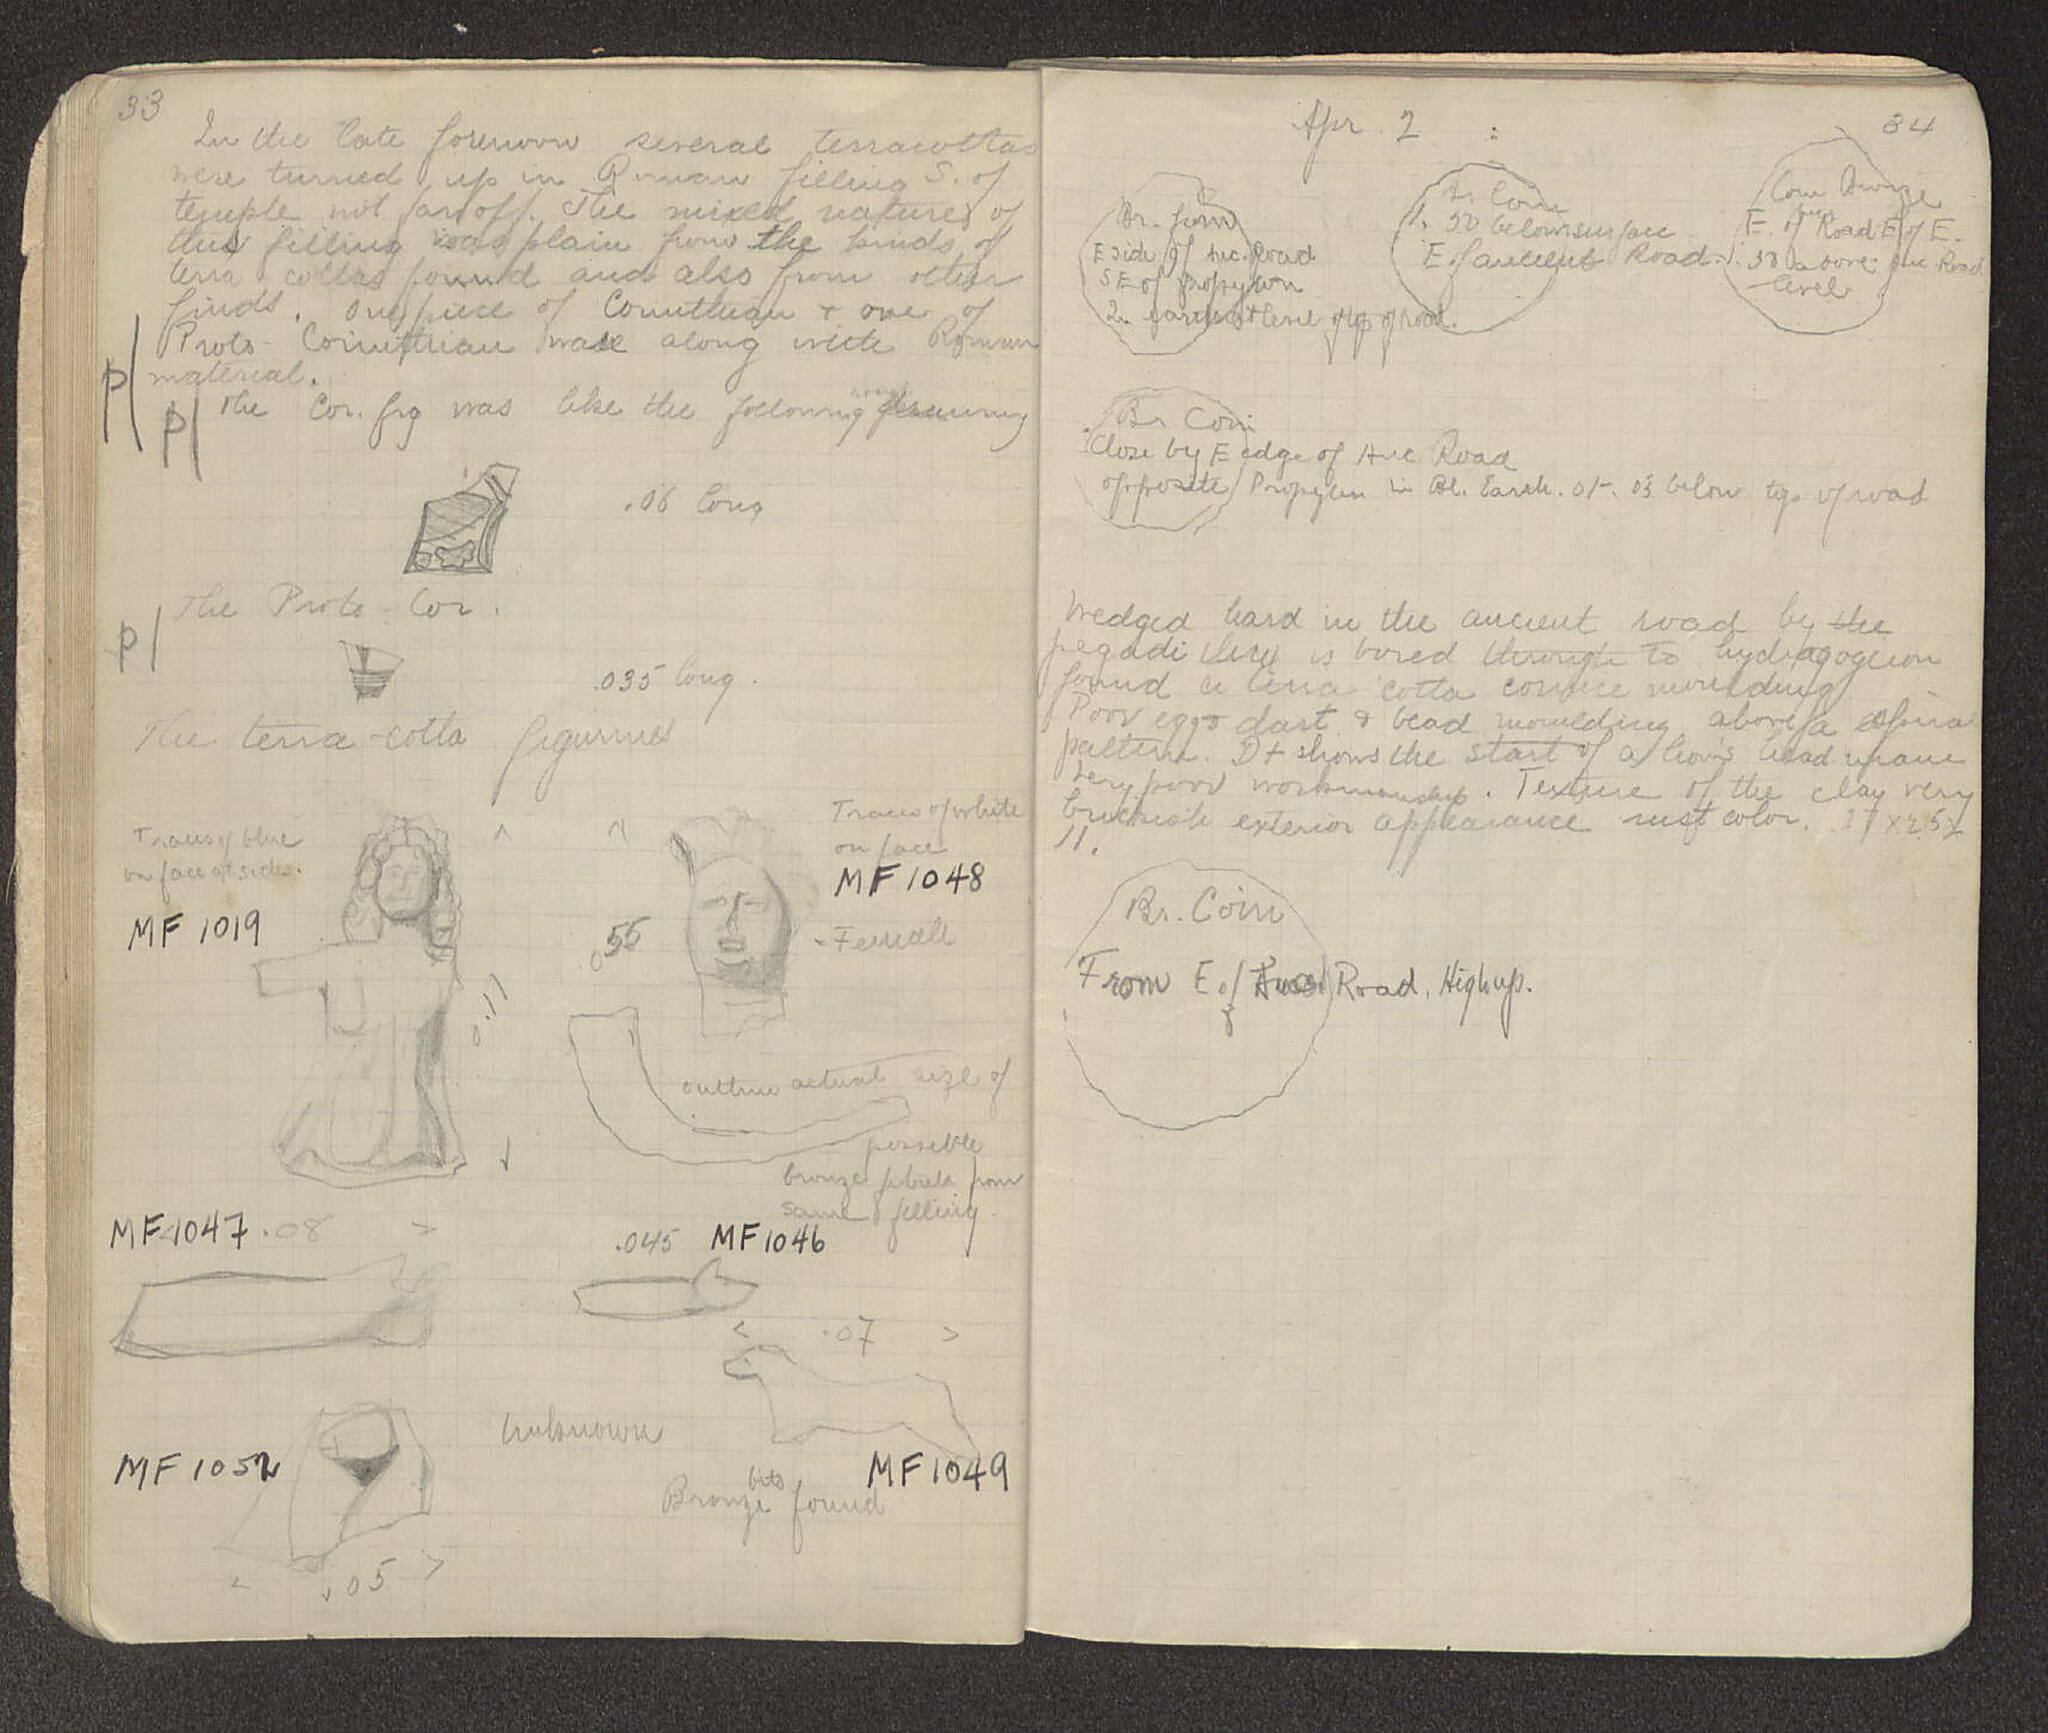 33
In the late forenoon several terracottas
were turned up in Roman filling S. of
temple not far off. The mixed nature of
this filling was plain from the kinds of
terra cottas found and also from other
finds. One piece of Corinthian + one of
Proto-Corinthian was along with Roman
material.
p|
p| The Cor. frg was like the following rough drawing
.06 long
The Proto-Cor.
p|
.035 long.
The terra-cotta figurines
Traces of blue
on face at sides.
MF 1019
0.11
Traces of white
on face
MF 1048
0.55
- Female
outline actual size of
possible
bronze fibula from
same filling.
MF 1047 .08 >
.045 MF 1046
< .07 >
Unknown
MF 1052
MF 1049
Bronze bits found
< .05 >
Apr. 2 34
Br. Coin
E side of Anc. Road
SE of Propylon
level of top of road.
Br Coin
1.50 below surface
E. of ancient Road.
Coin Bronze
E. of Anc Road E of E.
.50 above anc. Road
level
Br Coin
Close by E edge of Anc Road
opposite Propylon in Bl. Earth. .01-.03 below top of road
Wedged hard in the ancient road by the
pegadi is bored through to hydragogeion
found a terra cotta cornice moulding
Poor egg + dart & bead moulding above a
pattern. It shows the start of a lion's head
Very poor workmanship. Texture of the clay very
brickish exterior appearance rust color. .17 x
11.
Br. Coin
From E. of Anc. Road. High up.